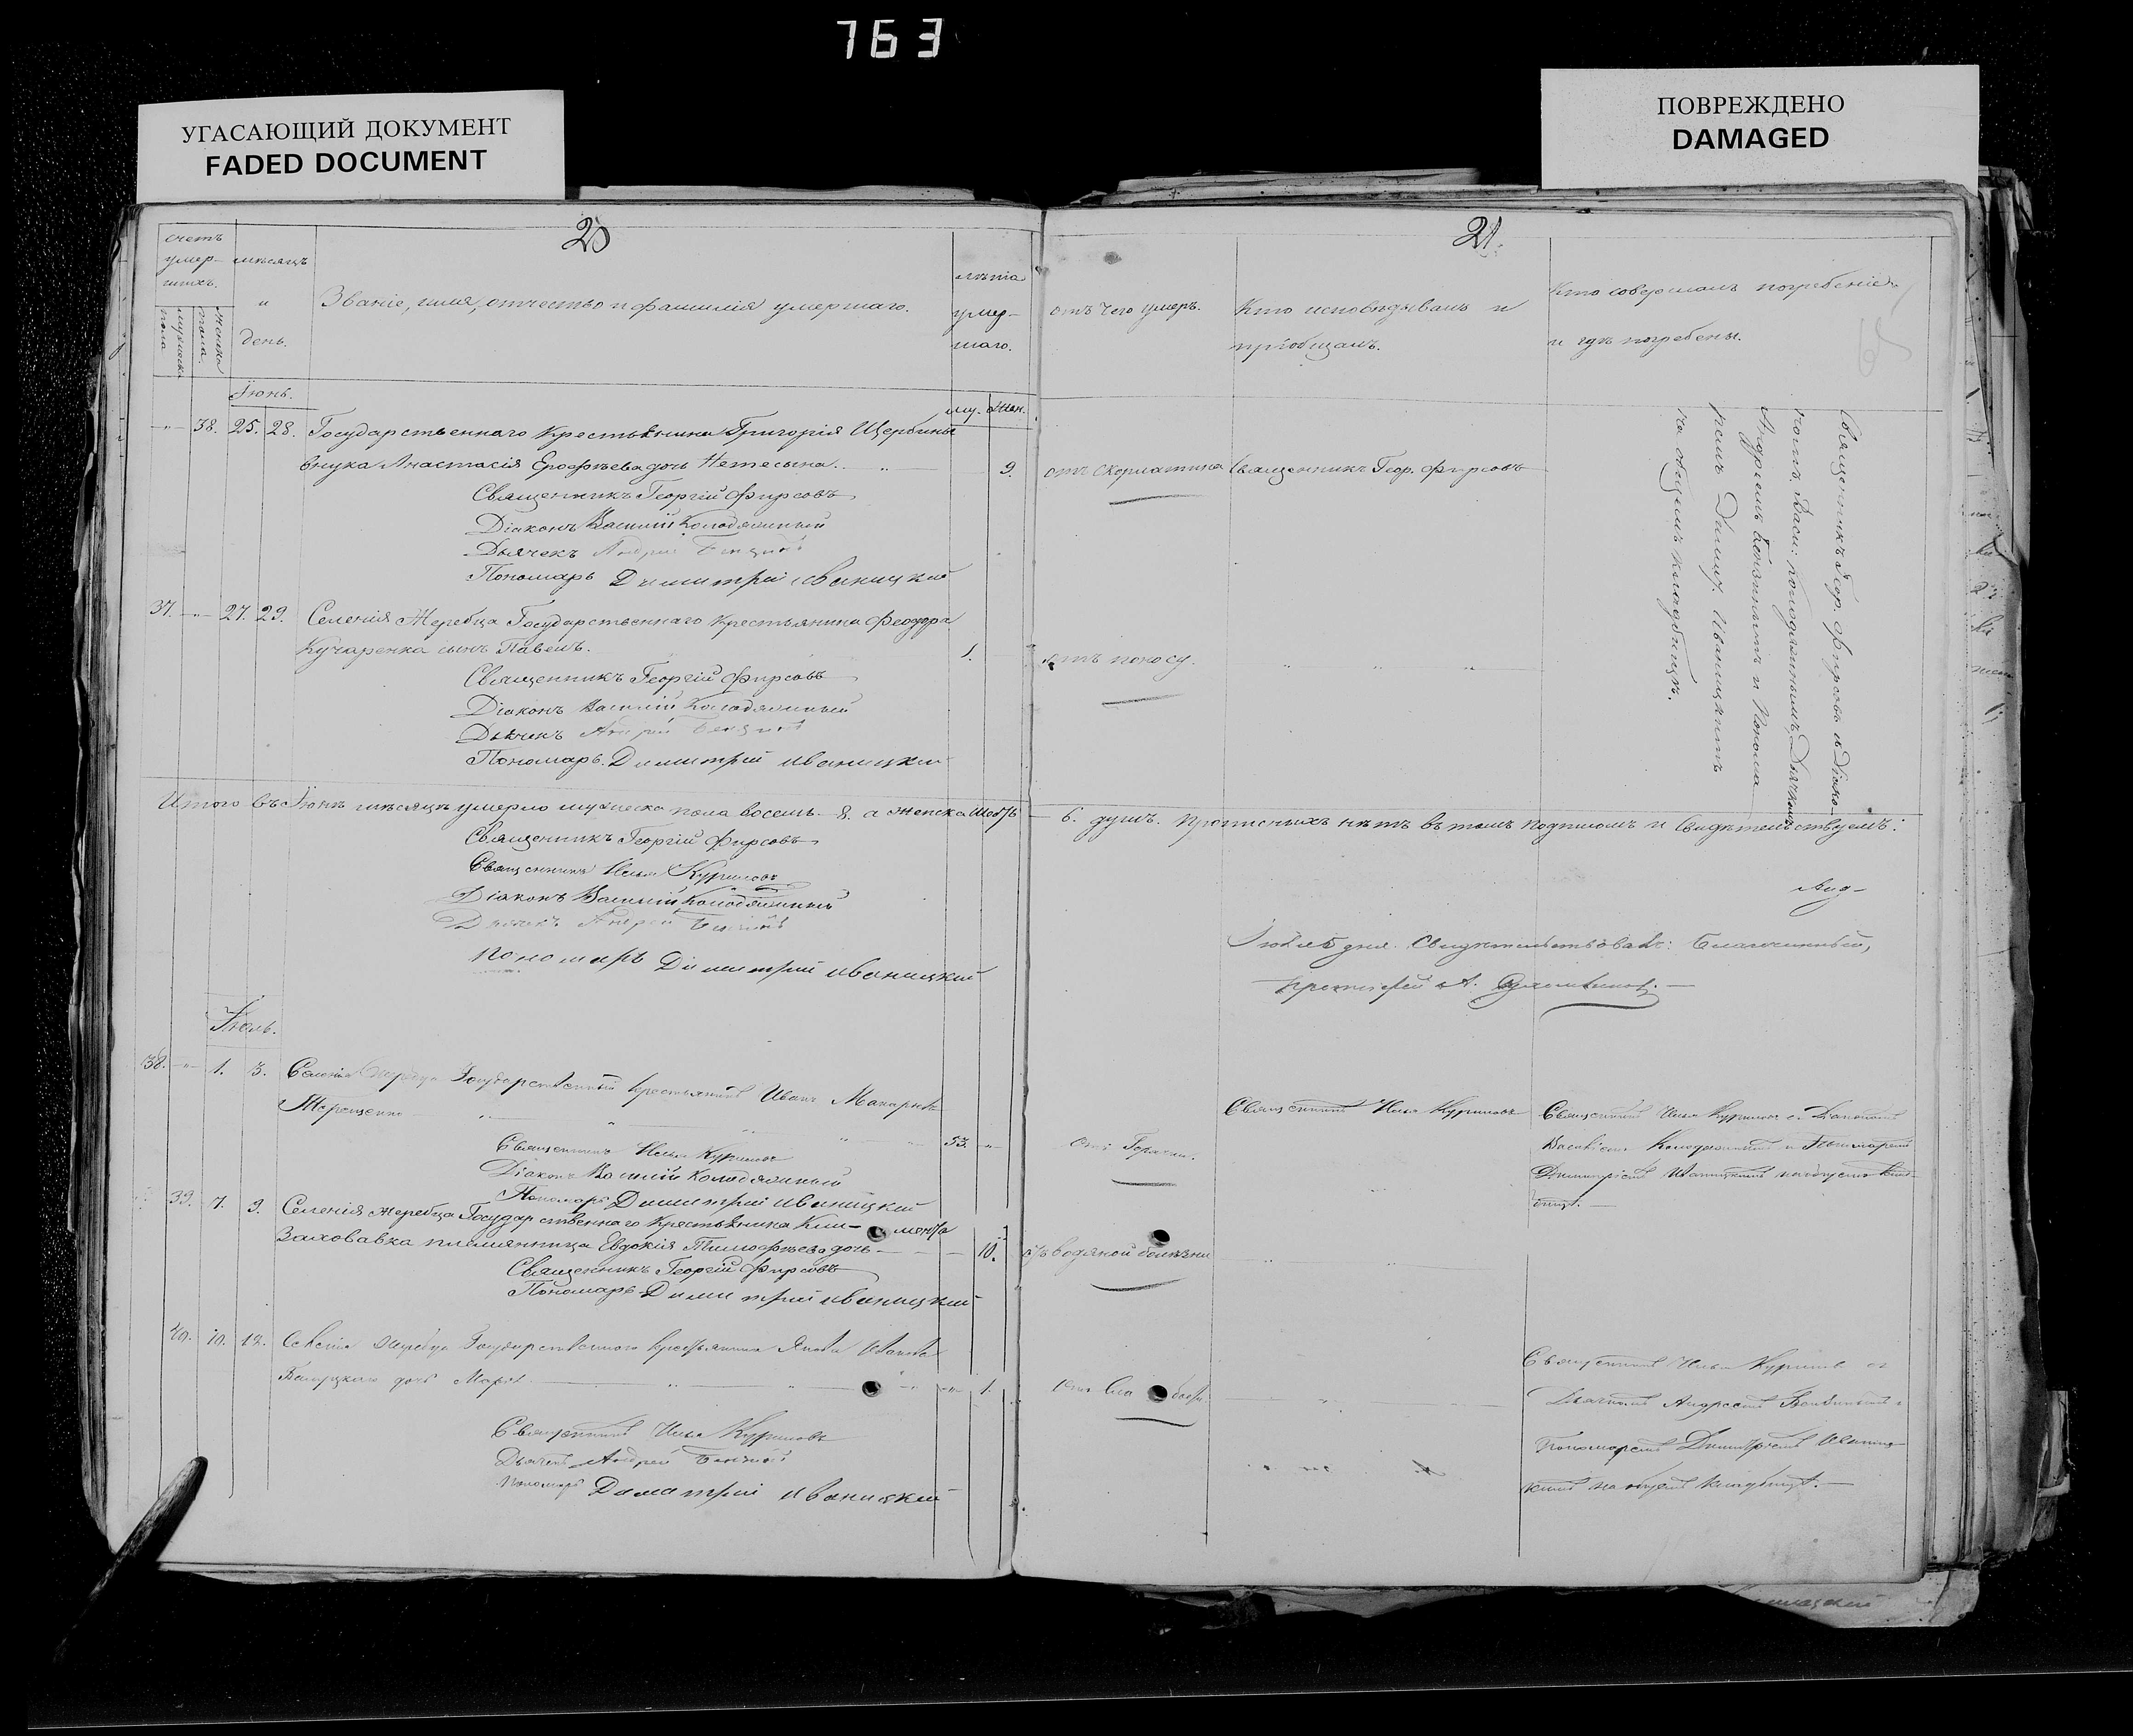 763
УГАСАЮЩИЙ ДОКУМЕНТ
FADED DOCUMENT
ПОВРЕЖДЕНО
DAMAGED
20
счетъ умер-шихъ.
мужеска пола
женска пола
мѣсяцъ и день.
Званіе, имя, отчество и фамилія умершаго.
лѣта умер-шаго.
Іюнь.
му. жен.
38. 25. 28. Государственнаго крестьянина Григорія Щербины
внука Анастасія Ерофѣева дочь Нетесына. 9.
Священникъ Георгій Фирсовъ
Діаконъ Василій Колодяжный
Дьячекъ Андрей
Пономарь Димитрій Иваницкій
37. 27. 29. Селенія Жеребца Государственнаго крестьянина Феодора
Кучаренка сынъ Павелъ. 1.
Священникъ Георгій Фирсовъ
Діаконъ Василій Колодяжный
Дьячекъ Андрей
Пономарь Димитрій Иваницкій
Итого въ Іюнѣ мѣсяцѣ умерло мужеска пола восемь 8. а женска шесть
Священникъ Георгій Фирсовъ
Священникъ Илья Куриловъ
Діаконъ Василій Колодяжный
Дьячекъ Андрей
Пономарь Димитрій Иваницкій
Іюль.
38. 1. 3. Селенія Жеребца Государственный крестьянинъ Иванъ Макарьевъ
Терещенко 53.
Священникъ Илья Куриловъ
Діаконъ Василій Колодяжный
Пономарь Димитрій Иваницкій
39. 7. 9. Селенія Жеребца Государственнаго крестьянина Кли-мента
племянница Евдокія Тимофѣева дочь 10.
Священникъ Георгій Фирсовъ
Пономарь Димитрій Иваницкій
40. 10. 12. Селенія Жеребца Государственнаго крестьянина Якова Иванова
дочь Марія 1.
Священникъ Илья Куриловъ
Дьячекъ Андрей
Пономарь Димитрій Иваницкій
21.
отъ чего умеръ.
Кто исповѣдывалъ и
пріобщалъ.
Кто совершалъ погребеніе
и гдѣ погребены.
отъ скорлатина Священникъ Геор. Фирсовъ
Священникъ Геор. Фирсовъ и Діако-
номъ Васи: Колодяжнымъ, Дьячкомъ
Андреемъ и Понома
ремъ Димит. Иваницкимъ
на общемъ кладбищѣ.
отъ поносу.
6. душъ. Прописныхъ нѣтъ въ томъ подписомъ и свидѣтельствуемъ:
Іюля 5 дня. Свидѣтельствовалъ: Благочинный,
протоіерей А.
отъ Горячки.
Священникъ Илья Куриловъ
Священникъ Илья Куриловъ съ Діакономъ
Василіемъ Колодяжнымъ и Пономаремъ
Димитріемъ Иваницкимъ на общемъ клад-
бищѣ.
отъ водяной болѣзни
отъ слабости
Священникъ Илья Куриловъ съ
Дьячкомъ Андреемъ
Пономаремъ Димитріемъ Иваниц-
кимъ на общемъ кладбищѣ.